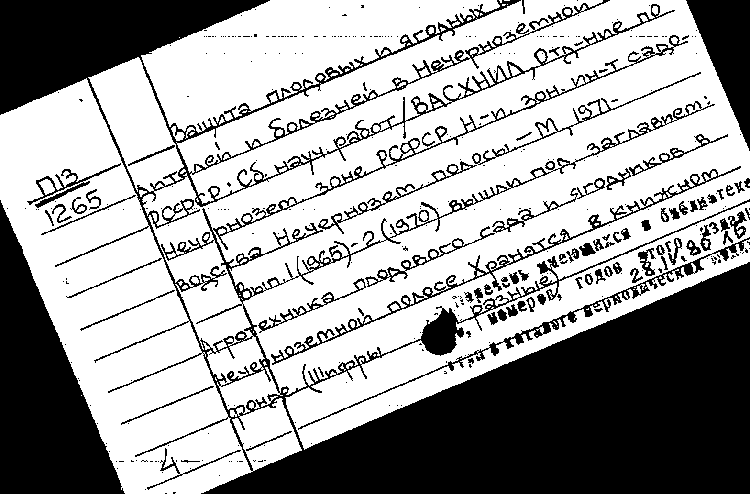 Защита плодовых и ягодных
дителей и болезней в Нечерноземной
РСФСР: Сб. науч. работ/ВАСХНИЛ, Отд-ние по
Нечернозем. зоне РСФСР, Н.-и. зон. ин-т садо-
водства Нечернозем. полосы. – М., 1971-
Вып. 1 (1965)-2 (1970) вышли под заглавием:
Агротехника плодового сада и ягодников в
нечерноземной полосе. Хранятся в книжном
фонде. (Шифры разные)
П13
1265
4
Перечень имеющихся в библиотеке
номеров, годов этого издания
28.IV.86
в каталоге периодических